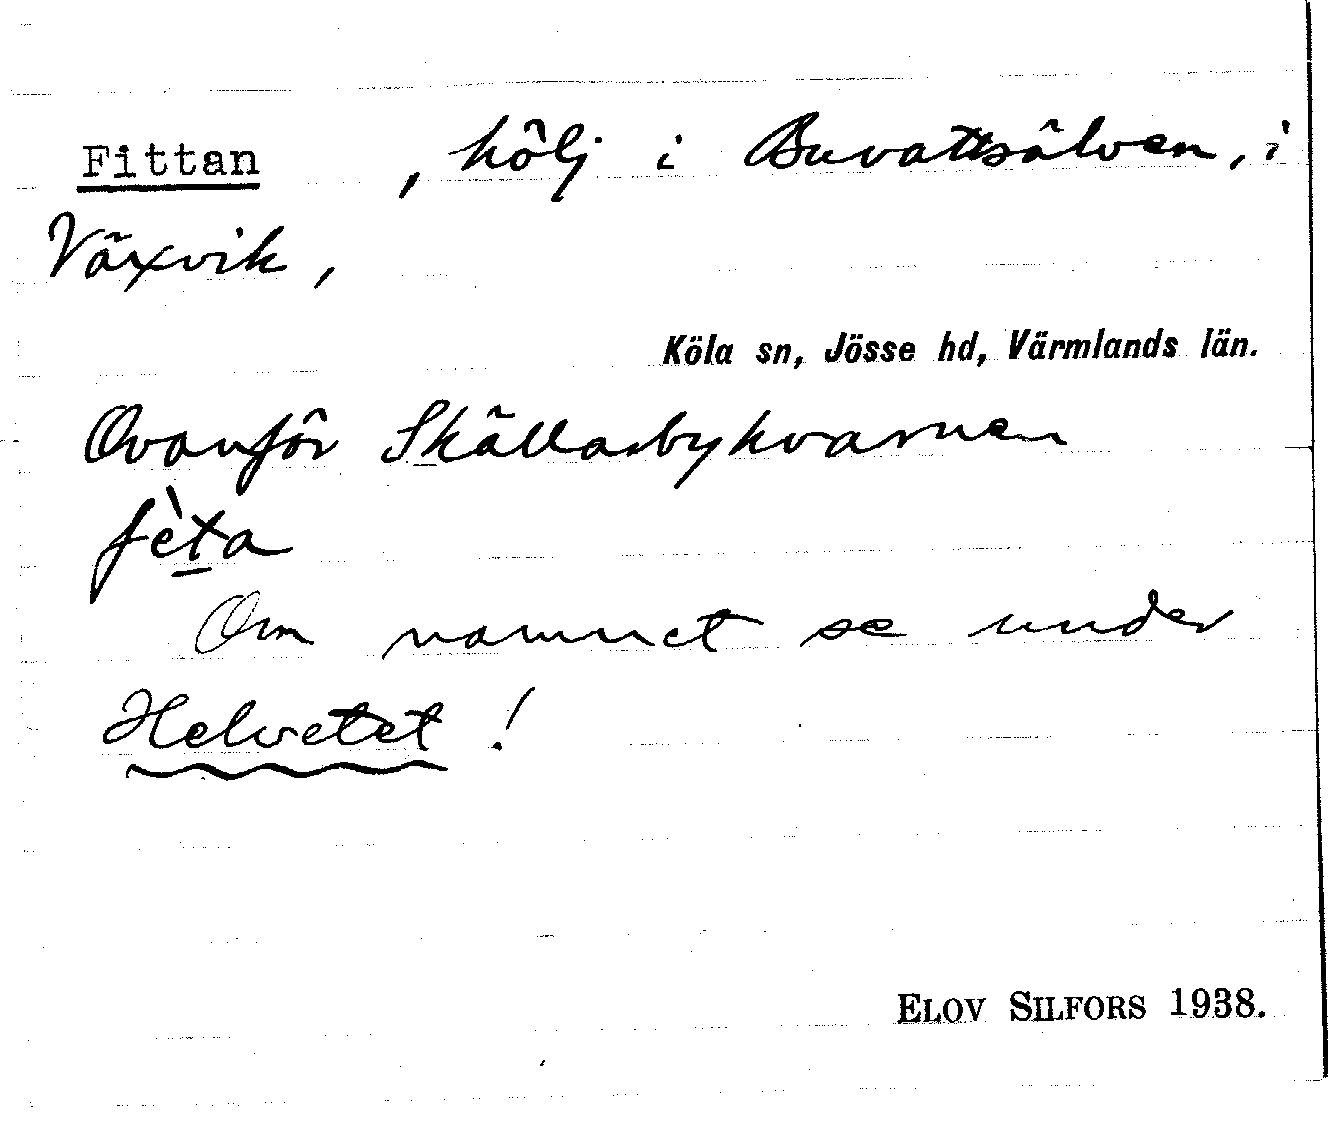 Fittan , hölj i Buvattsälven, i
Växvik ,
Köla sn, Jösse hd, Värmlands län.
Ovanför Skällarbykvarnen
fèṯa
Om namnet se under
Helvetet !
ELOV SILFORS 1938.